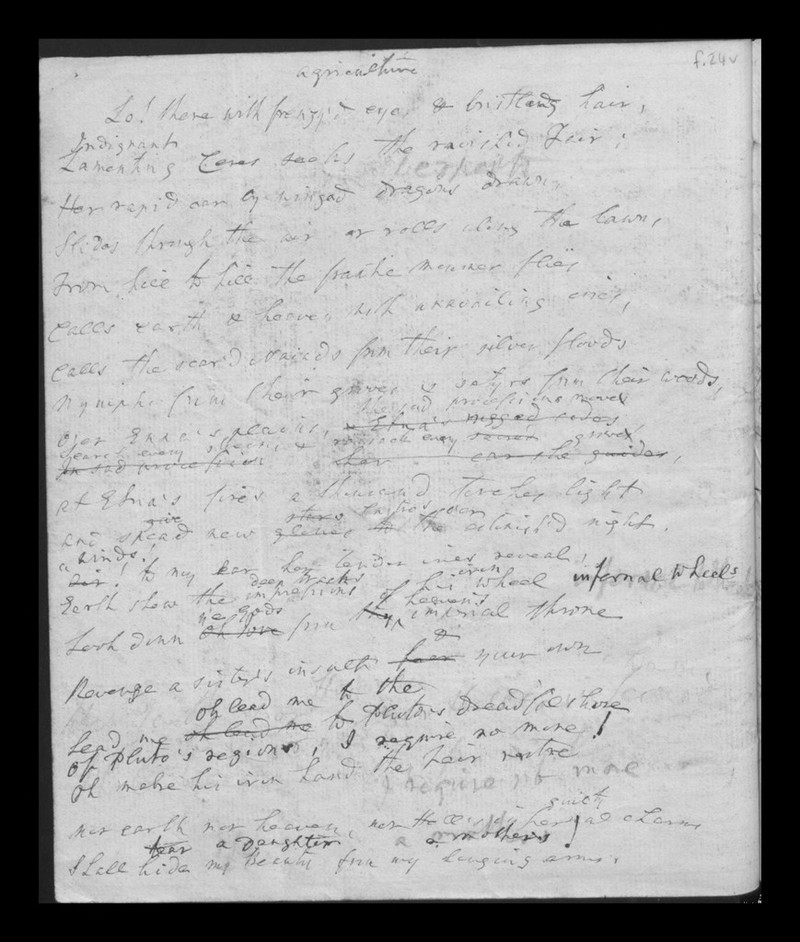 f.24v
agriculture
Lo! there with frenzy'd eyes & bristling hair,
Indignant
Lamenting Ceres seeks the ravished Fair;
Her rapid car by winged dragons drawn
Glides through the air or rolls along the lawn,
From hill to hill the frantic mourner flies
Calls earth & heaven with unavailing cries,
Calls the scar'd Naiads from their silver floods
Nymphs from their groves & satyrs from their woods,
the sad procession moves
Oer Enna's plains, & Etna's rugged sides
Search every & ransack every secret grove
In sad procession her car she guides,
At Etna's fires a thousand torches light
give stars
And spread new to the astonish'd night.
winds!
air! to my ear her tender cries reveal,
deep tracks iron
Earth show the impressions of his wheel infernal wheels
ye gods heaven's
Look down oh Jove from thy imperial throne
&
Revenge a sister's insult your own
oh lead me to the
Lead me oh lead me to Pluto's dreadful shore
Of Pluto's regions, I require no more!
Oh make his iron hand the fair restore
I require no more
guilty
Nor earth nor heaven, nor Hell's charms
tear a daughter a mother's
Shall hide my Beauty from my longing arms.